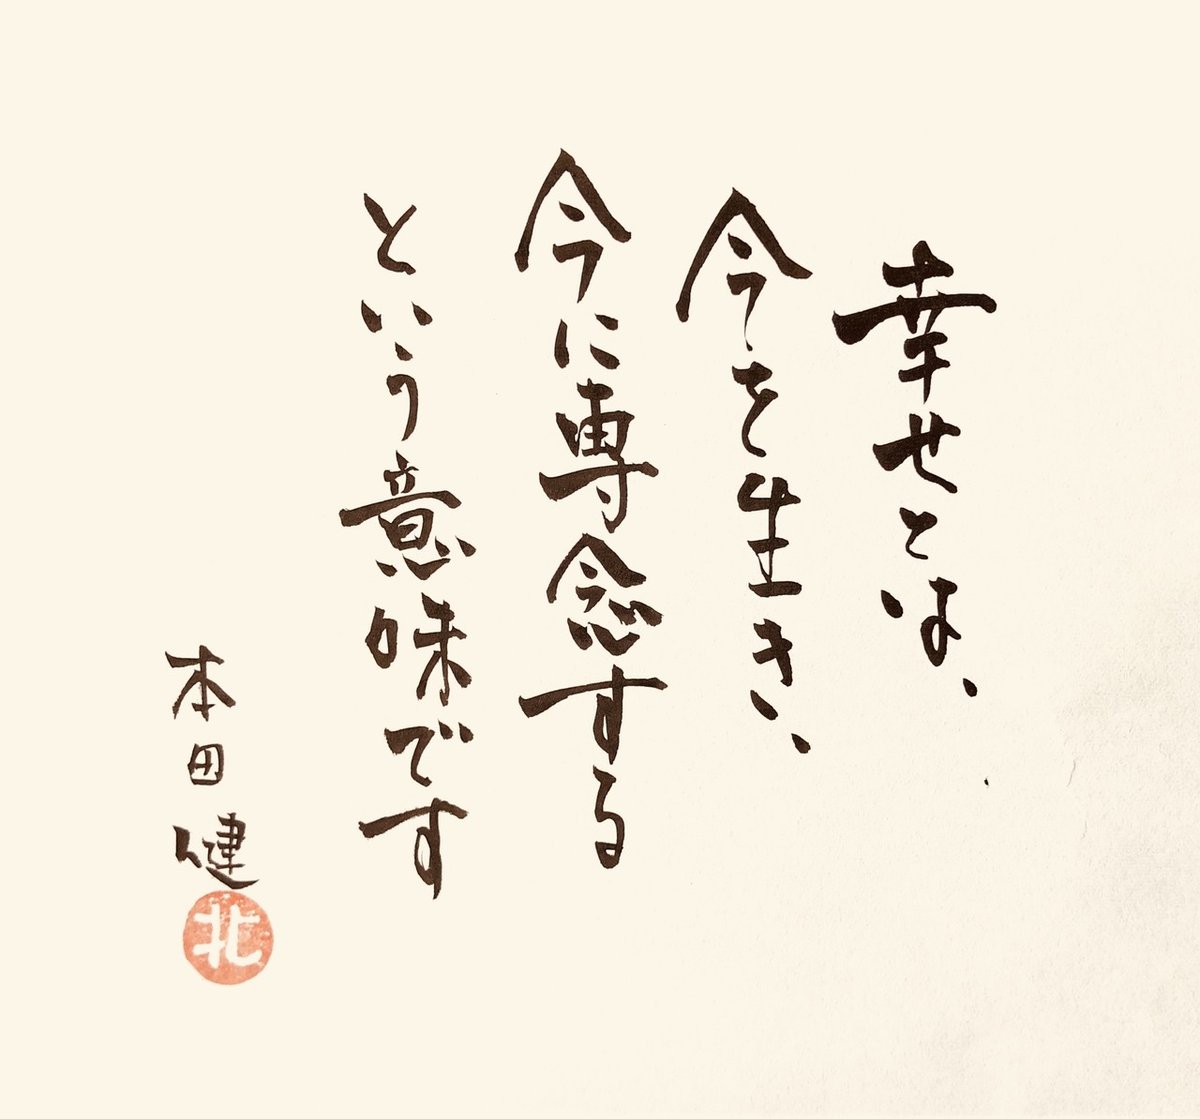 幸せとは、
今を生き、
今に専念する
という意味です
本田健
北